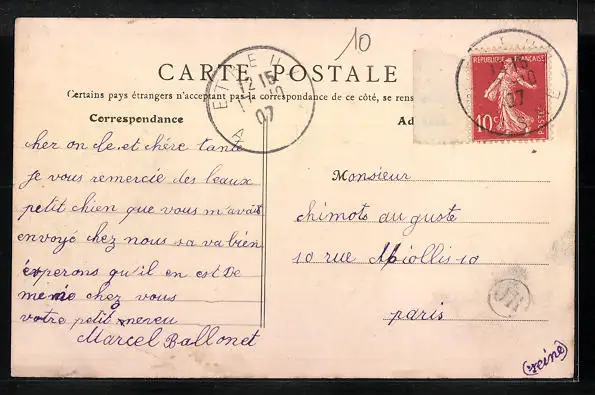 10
CARTE POSTALE
Certains pays étrangers n'acceptant pas la correspondance de ce côté, se rens
Correspondance
Ad
REPUBLIQUE FRANÇAISE
10c
POSTES
12 15
10
07
12 15
10
07
cher oncle et chére tante
je vous remercie des beaux
petit chien que vous m'avais
envoyé chez nous sa va bien
éxperons qu'il en est de
méme chez vous
votre petit neveu
Marcel Ballonet
Monsieur
chimots auguste
10 rue Miollis 10
paris
(seine)